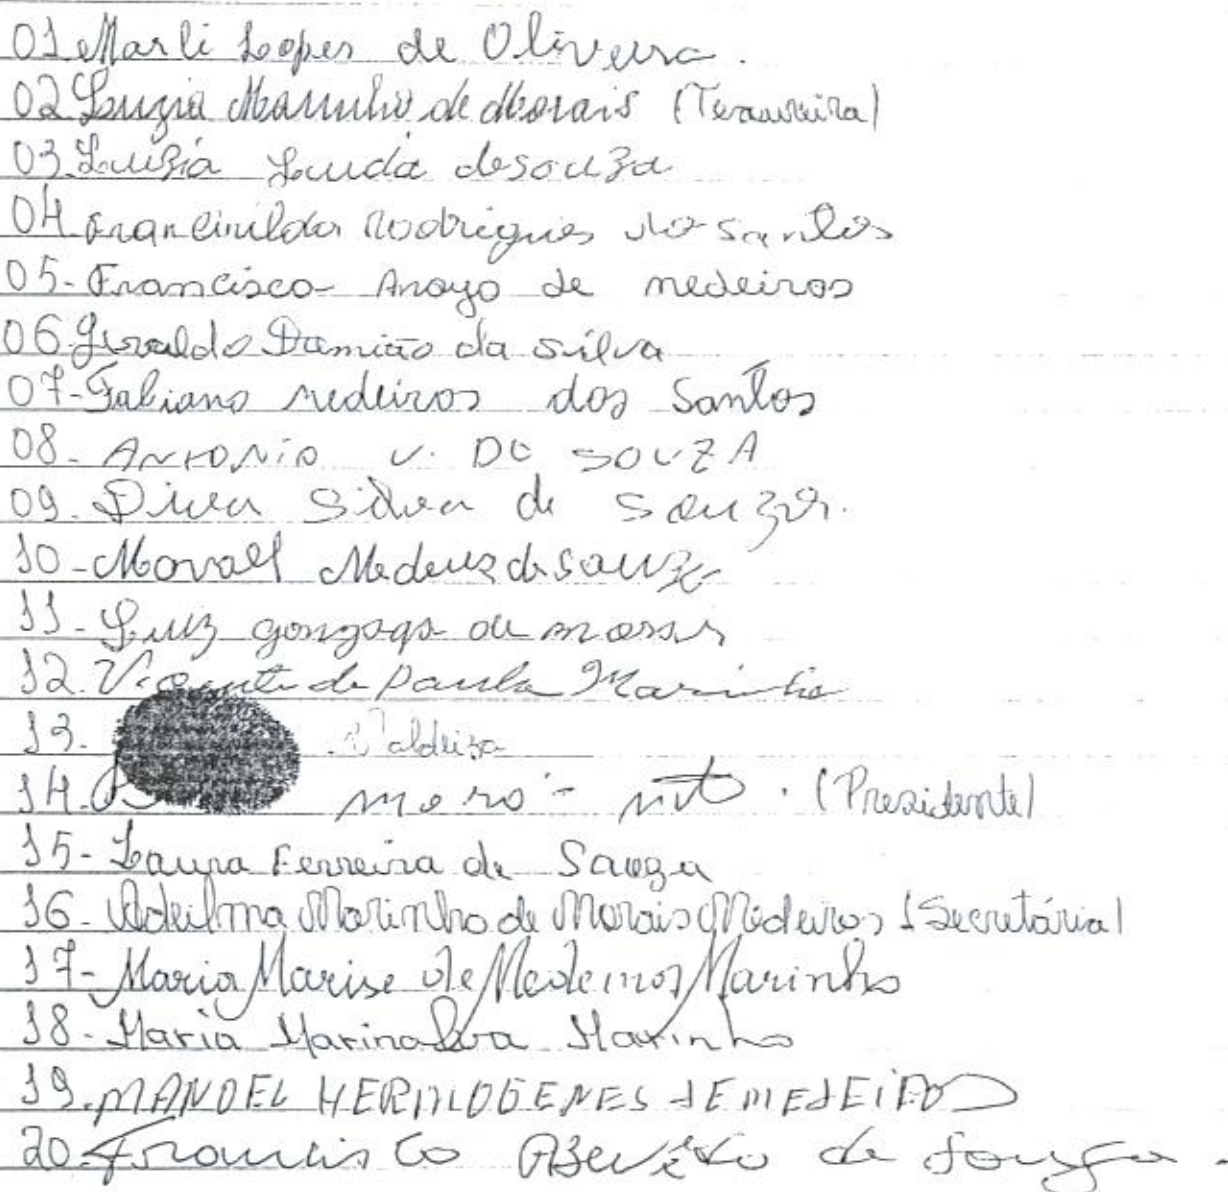 01 Marli Lopes de Oliveira.
02 Luzia Marinho de Morais (Tesoureira)
03. Luizia Lucia de souza
04. Francinilda Rodrigues dos santos
05- Francisco Anoyo de medeiros
06. Geraldo Damião da silva
07- Fabiano medeiros dos Santos
08- ANTONIO V. DE SOUZA
09. Diva Silva de Souza.
10- Medeiros de Souza
11- Luiz gonzaga de morais
12. Vicente de Paula Marinho
13. Valdeiza
14. neto. (Presidente)
15- Laura Ferreira de Souza
16- Adeilma Marinho de Morais Medeiros (Secretária)
17- Maria Marise de Medeiros Marinho
18- Maria Marinalva Marinho
19. MANOEL HERMOGENES DE MEDEIROS
20- Francisco Azevedo de Souza.